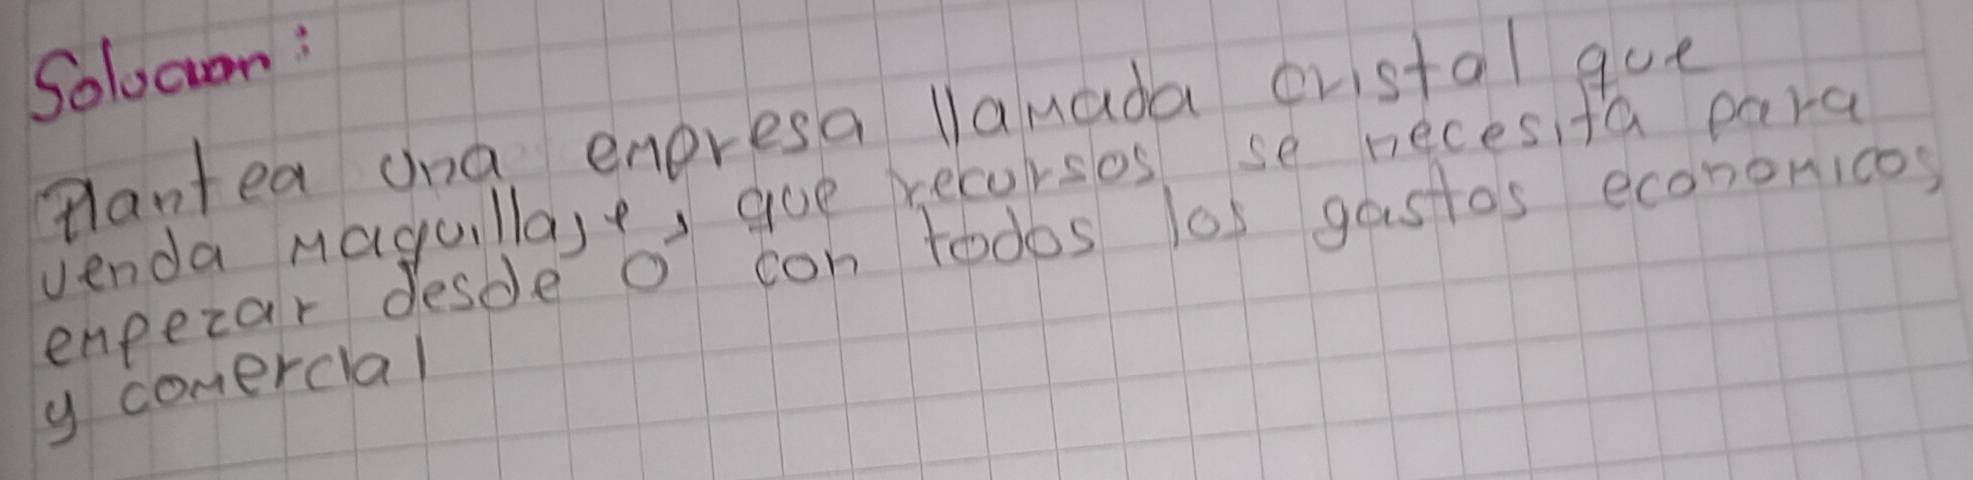 Solucion:
Plantea una empresa llamada cristal que
venda maquillaje, que recursos se necesita para
empezar desde 0 con todos los gastos economicos
y comercial